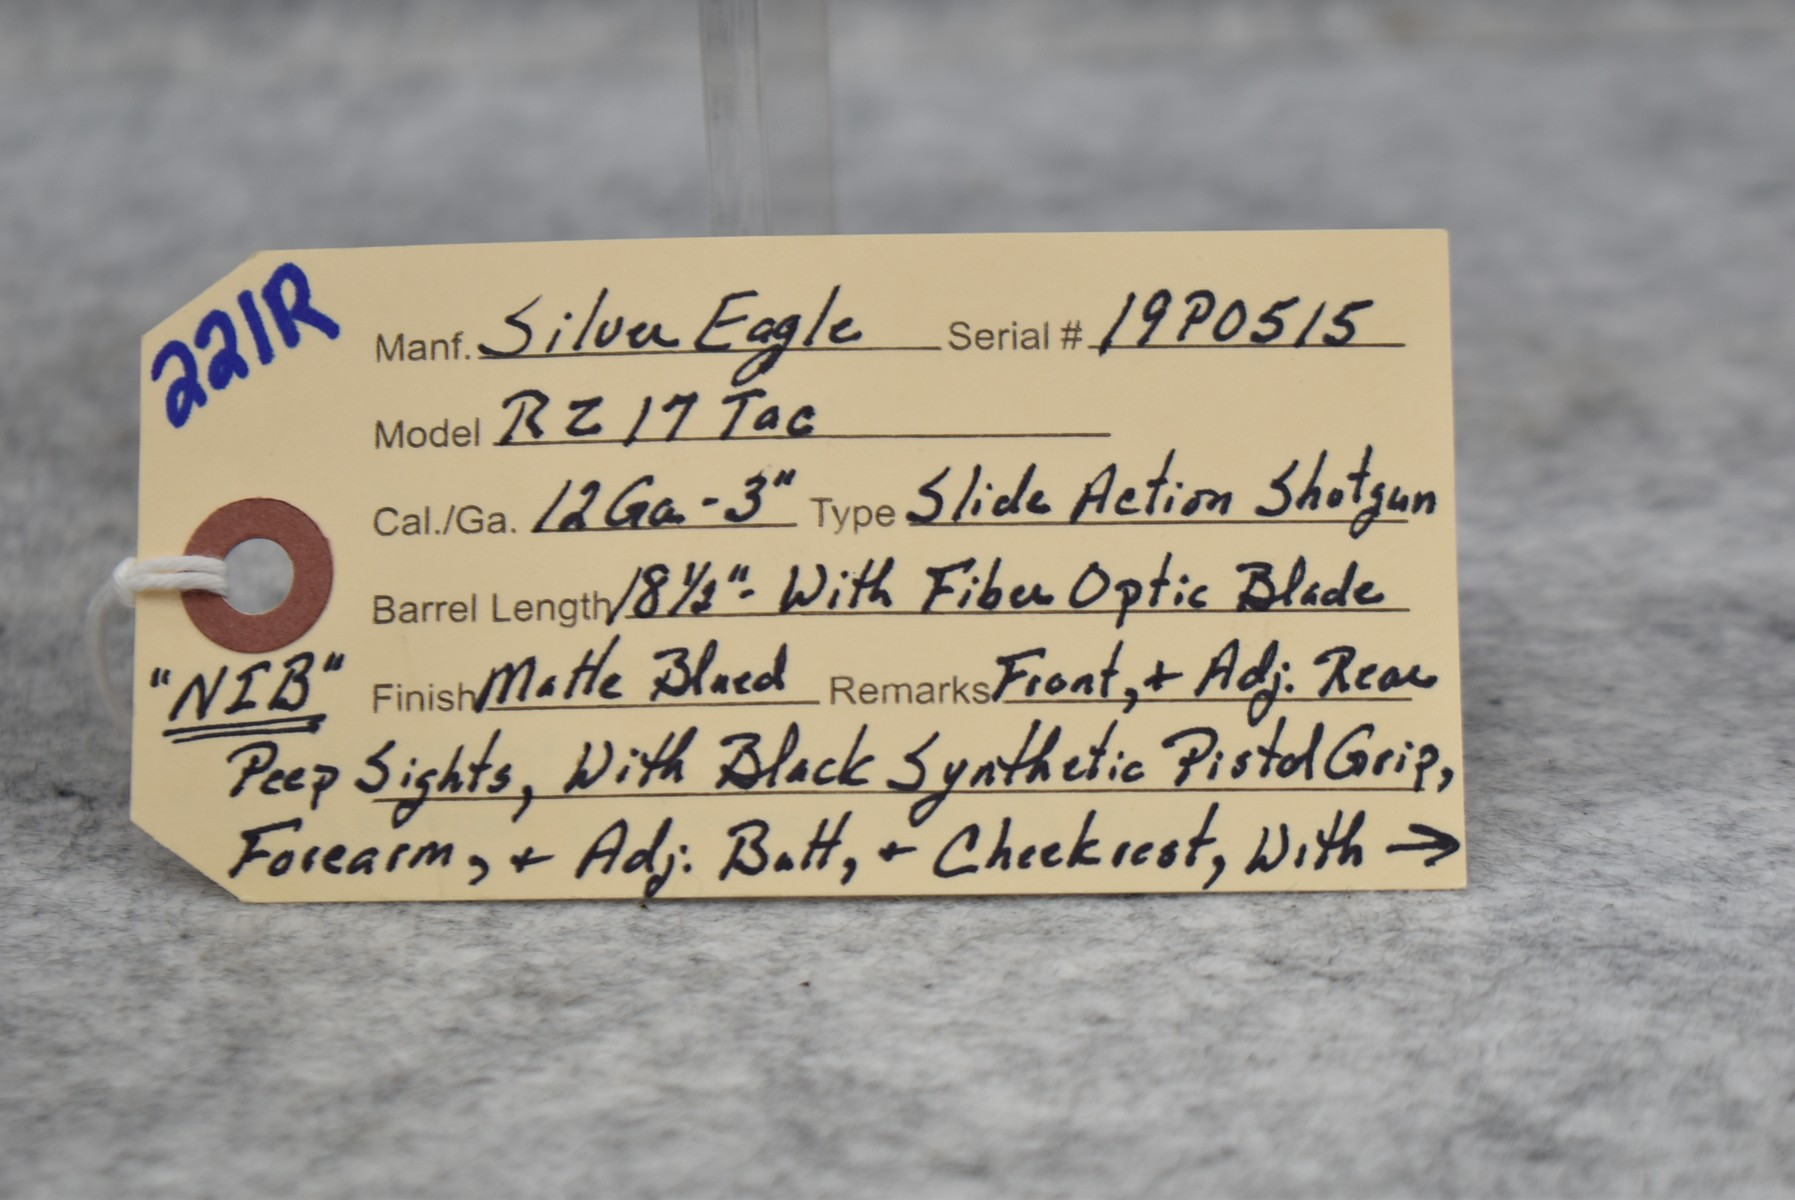 221R
Manf. Silver Eagle Serial # 19P0515
Model RZ17 Tac
Cal./Ga. 12Ga. - 3" Type Slide Action Shotgun
Barrel Length 18½" - With Fiber Optic Blade
"NIB" Finish Matte Blued Remarks Front, + Adj. Rear
Peep Sights, With Black Synthetic Pistol Grip,
Forearm, + Adj. Butt, + Cheekrest, With →